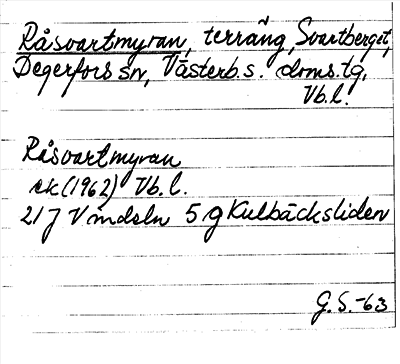 Råsvartmyran, terräng, Svartberget,
Degerfors sn, Västerb.s. doms.tg,
Vb.l.
Råsvartmyran
ek (1962) Vb.l.
21J Vindeln 5g Kulbäcksliden
G.S.-63